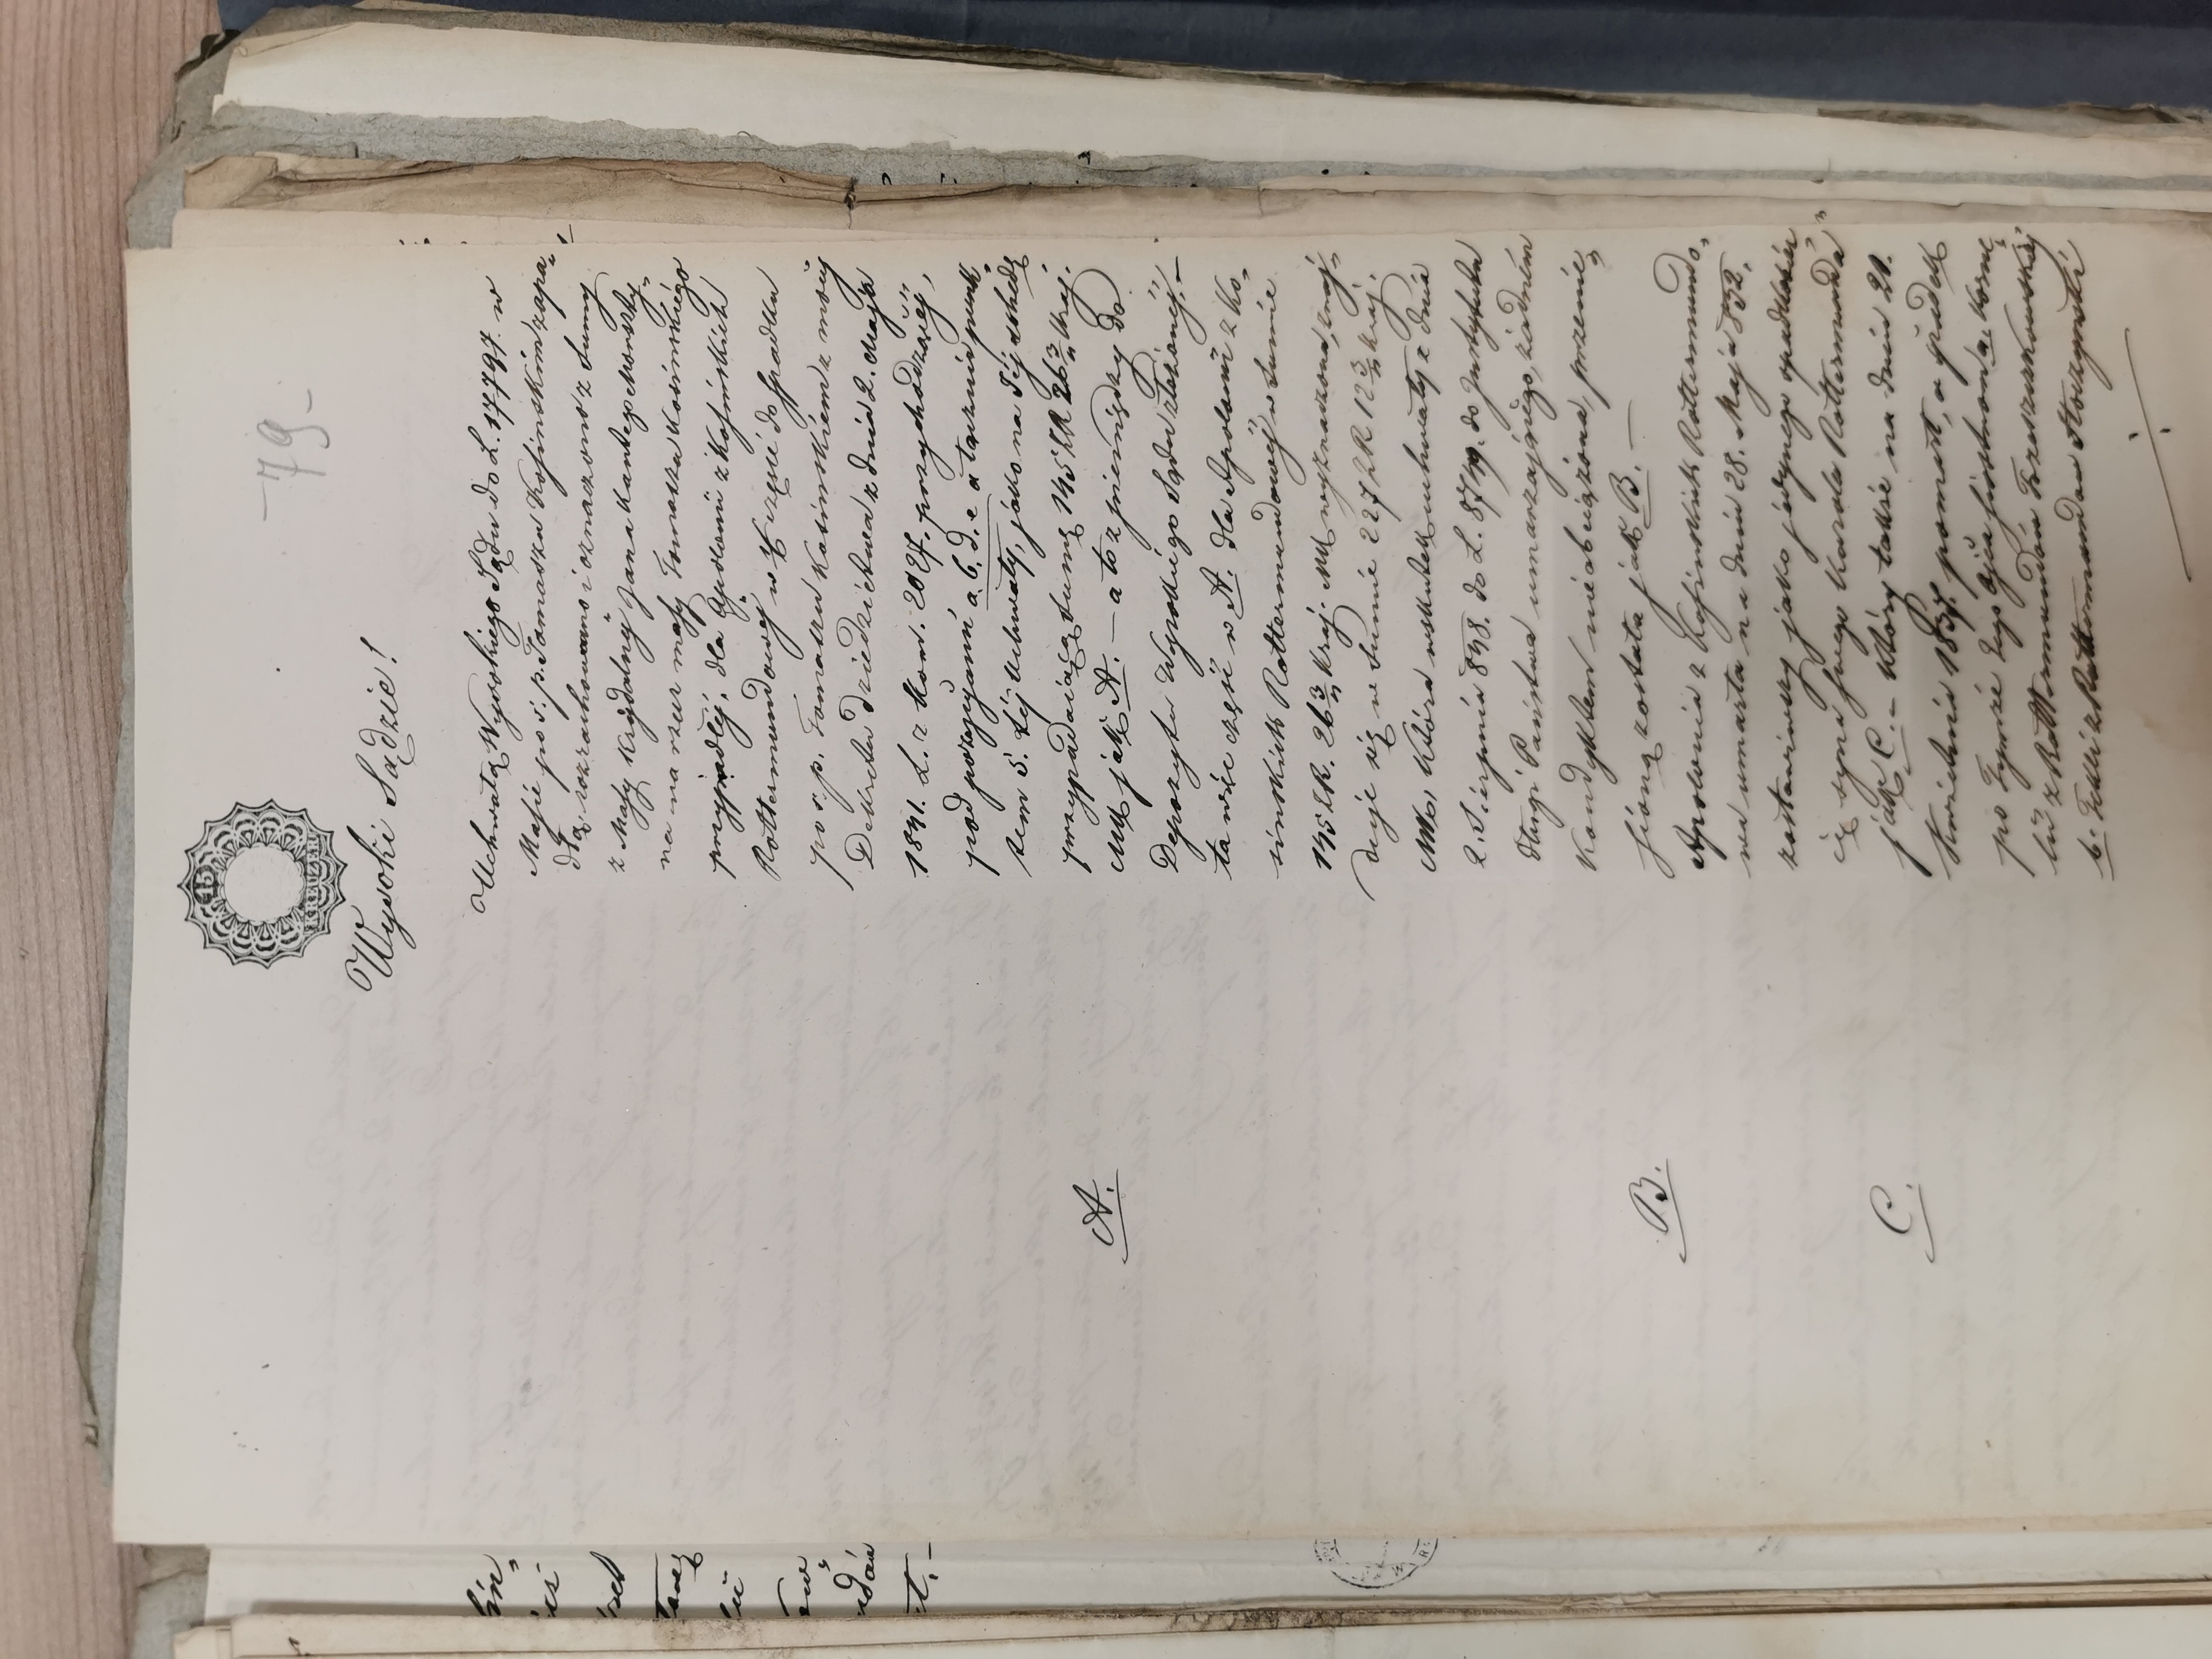 79
15
KREUZER
Wysoki Sądzie!
Uchwałą Wysokiego Sądu do L. 17797. w
Masie po ś. p. Tomaszu Kosińskim zapa„
dłą rozrachowano i oznaczono z Summy
z Masy krydalnej Jana Kantego
na na rzecz masy Tomasza Kosińskiego
przypadłej, dla Apolonii z Kosińskich
Rottermundowej w części do spadku
po ś. p. Tomaszu Kosińskim z mocy
Dekretu dziedzictwa z dnia 2. Maja
1841. L. z Kom. 2027. przychodzącej,
pod pozycyami a. b. d. e a tarznia punk„
tem 5. tej uchwały, jako na tej schedę
przypadającą sumę 145 ZR 26 3/„ kraj.
Mk jak A. — a to z pieniędzy do
Depozytu Wysokiego Sądu złożonej. —
Ta więc część w A. dla Apolonii z Ko„
sińskich Rottermundowej w sumie
145 ZR. 26 3/„ kraj. Mk wyznaczona, znaj„
duje się w sumie 227 ZR 12 3/„ kraj
Mk, która wskutek uchwały z dnia
2. Sierpnia 848. do L. 8719. do Instytutu
długi Państwa umarzającego, żadném
Kondyktem nie obciążona, przenie„
sioną została jak B. —
Apolonia z Kosińskich Rottermundo„
wa umarła na dniu 28. Maja 852,
zostawiwszy jako jedynego spadkobier„
cę syna swego Karola Rottermunda
jak C. — który także na dniu 21.
Kwietnia 1857. pomarł, a spadek
po Tymże Jego ojca siostrom a. Korne„
lii z Rottermundów Trzeszczkowskiej
b. Tekli z Rottermundów Stoczyński
A.
B.
C.